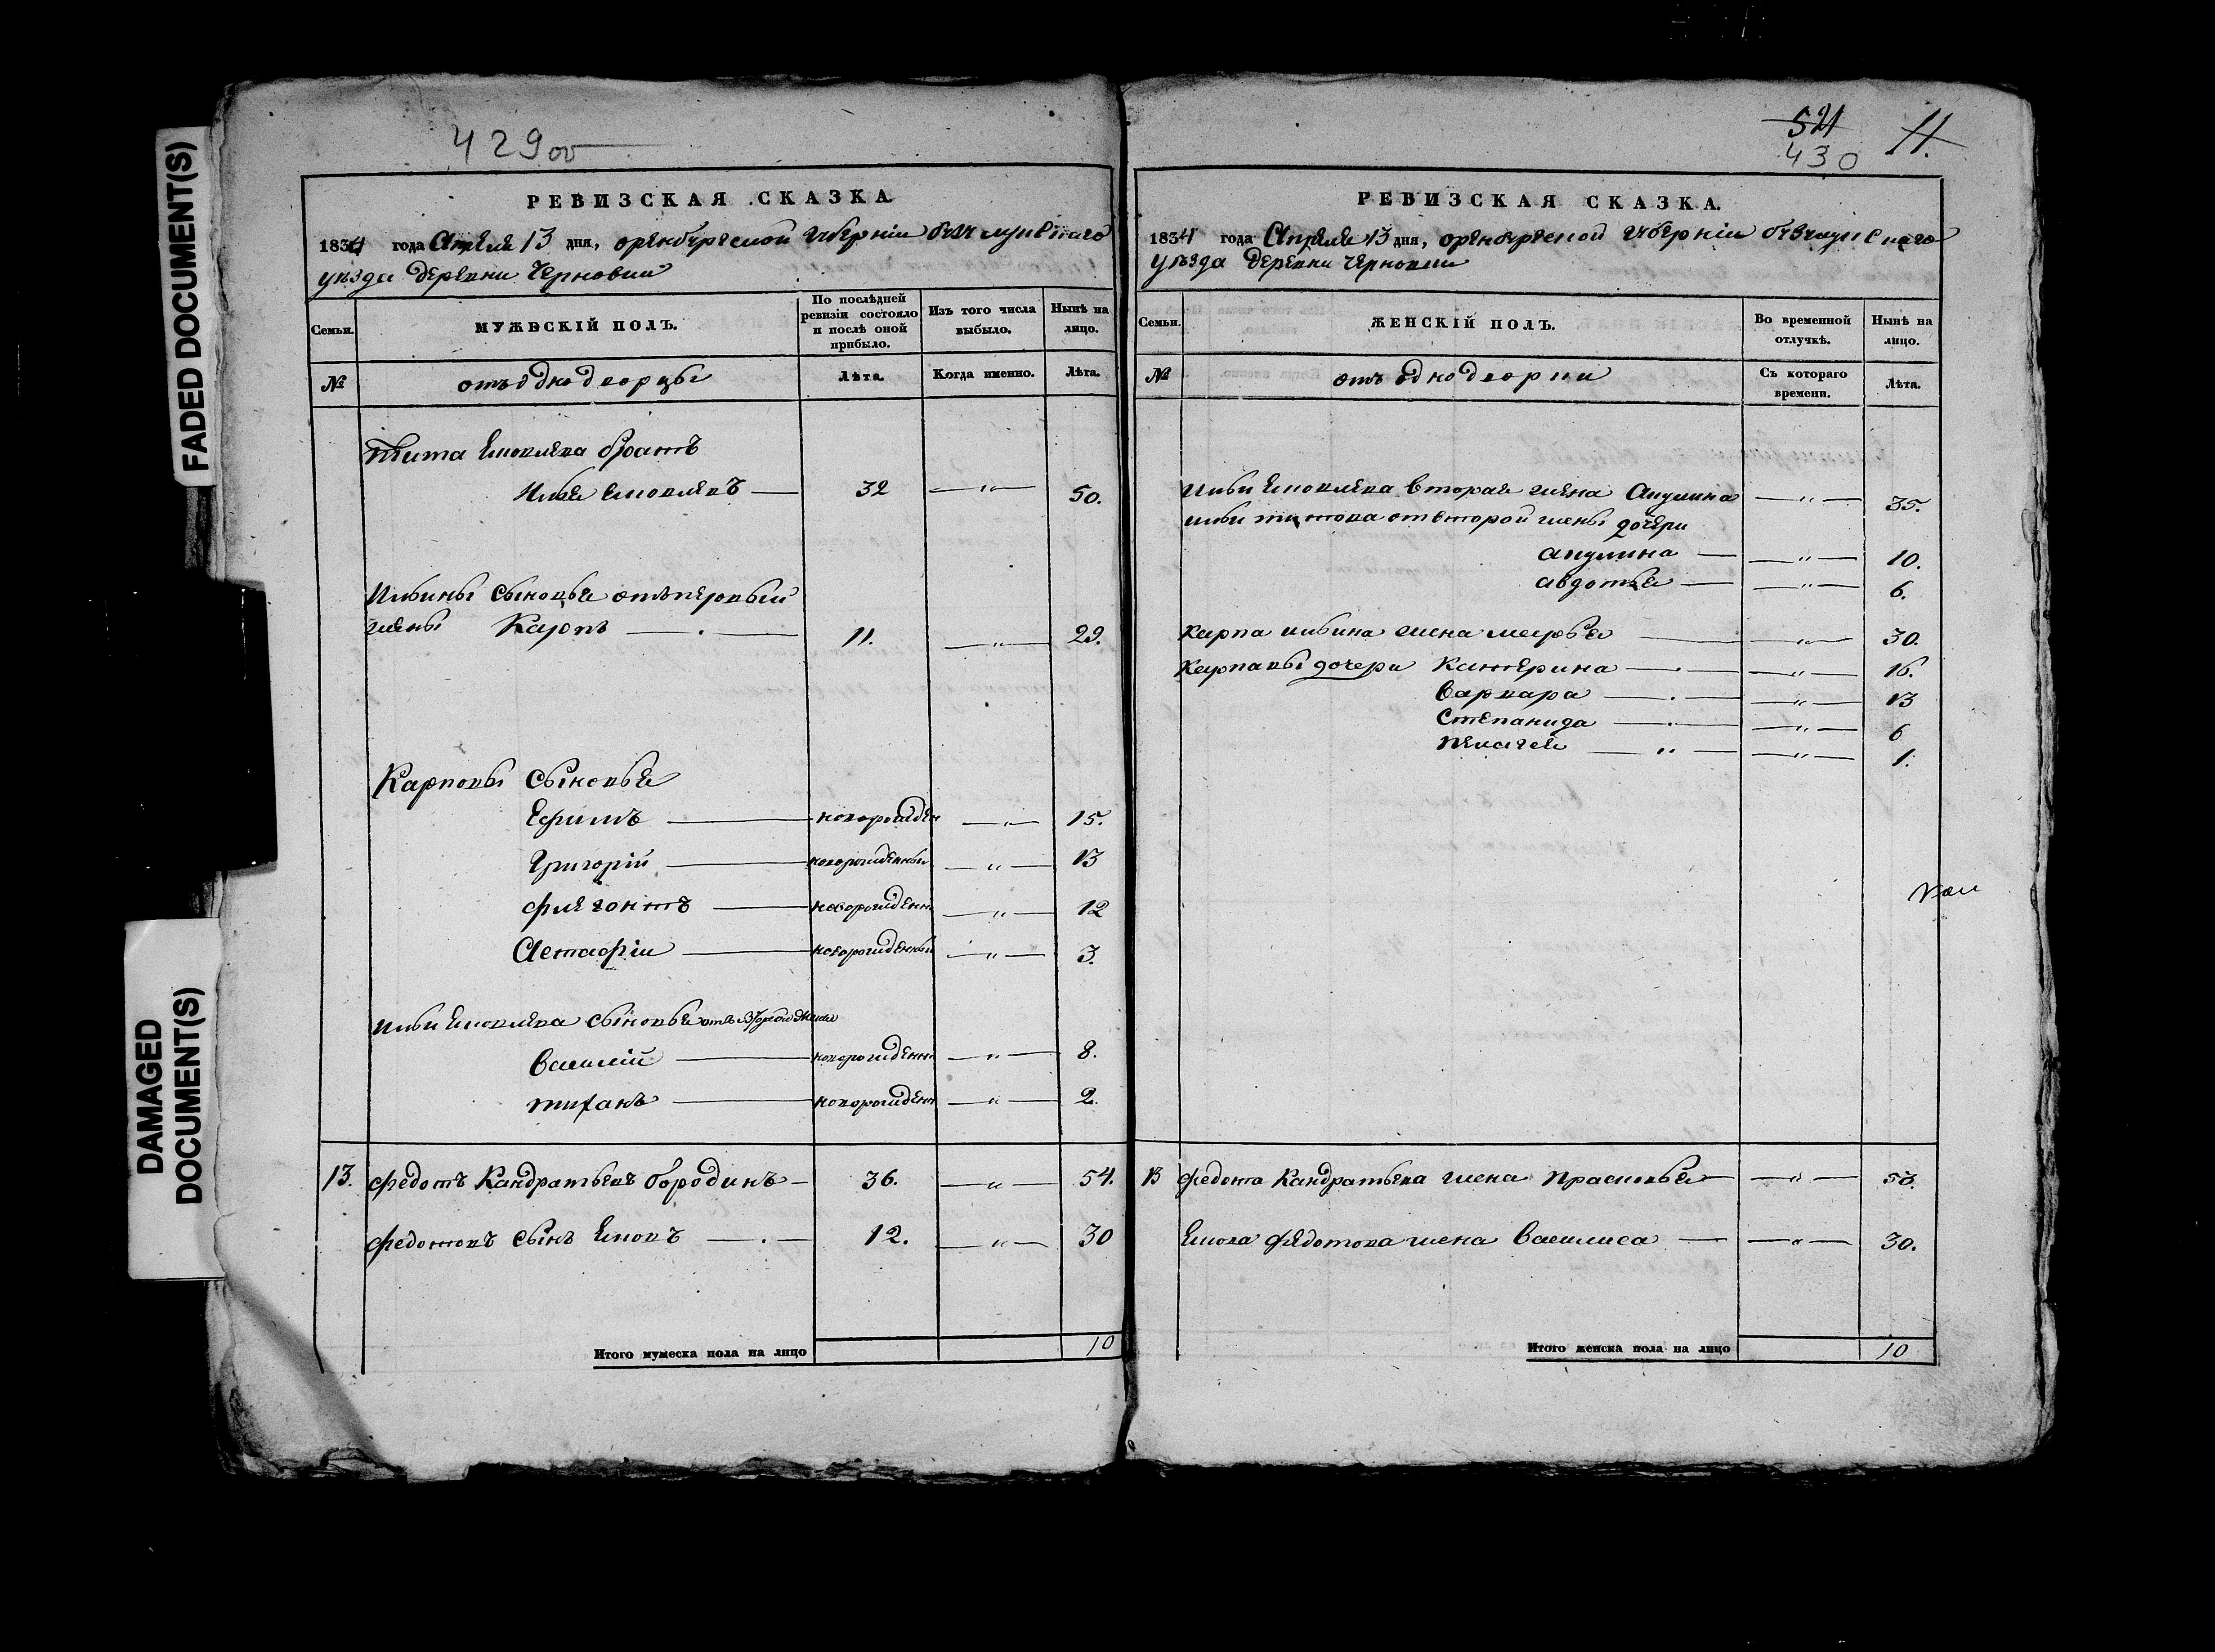 FADED DOCUMENT(S)
DAMAGED
DOCUMENT(S)
429 об
РЕВИЗСКАЯ СКАЗКА
1834 года Апреля 13 дня, оренбургской губерніи
уезда деревни Черновки
Семьи. МУЖЕСКІЙ ПОЛЪ. По послѣдней ревизіи состояло и послѣ оной прибыло. Изъ того числа выбыло. Нынѣ на лицо.
№ отъ однодворцы Лѣта. Когда именно. Лѣта.
Тита Яковлева братъ
Илья Яковлевъ — 32 — „ — 50.
Ильины сыновья отъ первый
жены Карпъ — . — 11. — „ — 29.
Карповы сыновья
Ефимъ — новорожден — „ — 15.
Григорій — новорожденный — „ — 13
Флегонтъ — новорожденн — „ — 12
Астафіи — новорожденный — „ — 3.
Ильи Яковлева сыновья отъ второй жены
Василій — новорожденн — „ — 8.
тиханъ — новорожден — „ — 2.
13. Федотъ Кандратьевъ бородинъ — 36. — „ — 54.
Федотовъ сынъ Яковъ — . — 12. — „ — 30
Итого мужеска пола на лицо 10
521
430
11.
РЕВИЗСКАЯ СКАЗКА.
1834 года Апреля 13 дня, оренбургской губерніи
уезда деревни Черновки
Семьи. ЖЕНСКІЙ ПОЛЪ. Во временной отлучкѣ. Нынѣ на лицо.
№ отъ однодворки Съ котораго времени. Лѣта.
Ильи Яковлева вторая жена Акулина — „ — 35.
Ильи от второй жены дочери
акулина — — „ — 10.
авдотья — — „ — 6.
Карпа ильина жена марья — — „ — 30.
Карпавы дочери Катерина — . — — „ — 16.
варвара — . — — „ — 13
Степанида — . — — „ — 6
пелагея — „ — — „ — 1.
13 Федота Кандратьева жена Прасковья — — „ —
Якова Федотова жена василиса — — „ — 30.
Итого женска пола на лицо 10